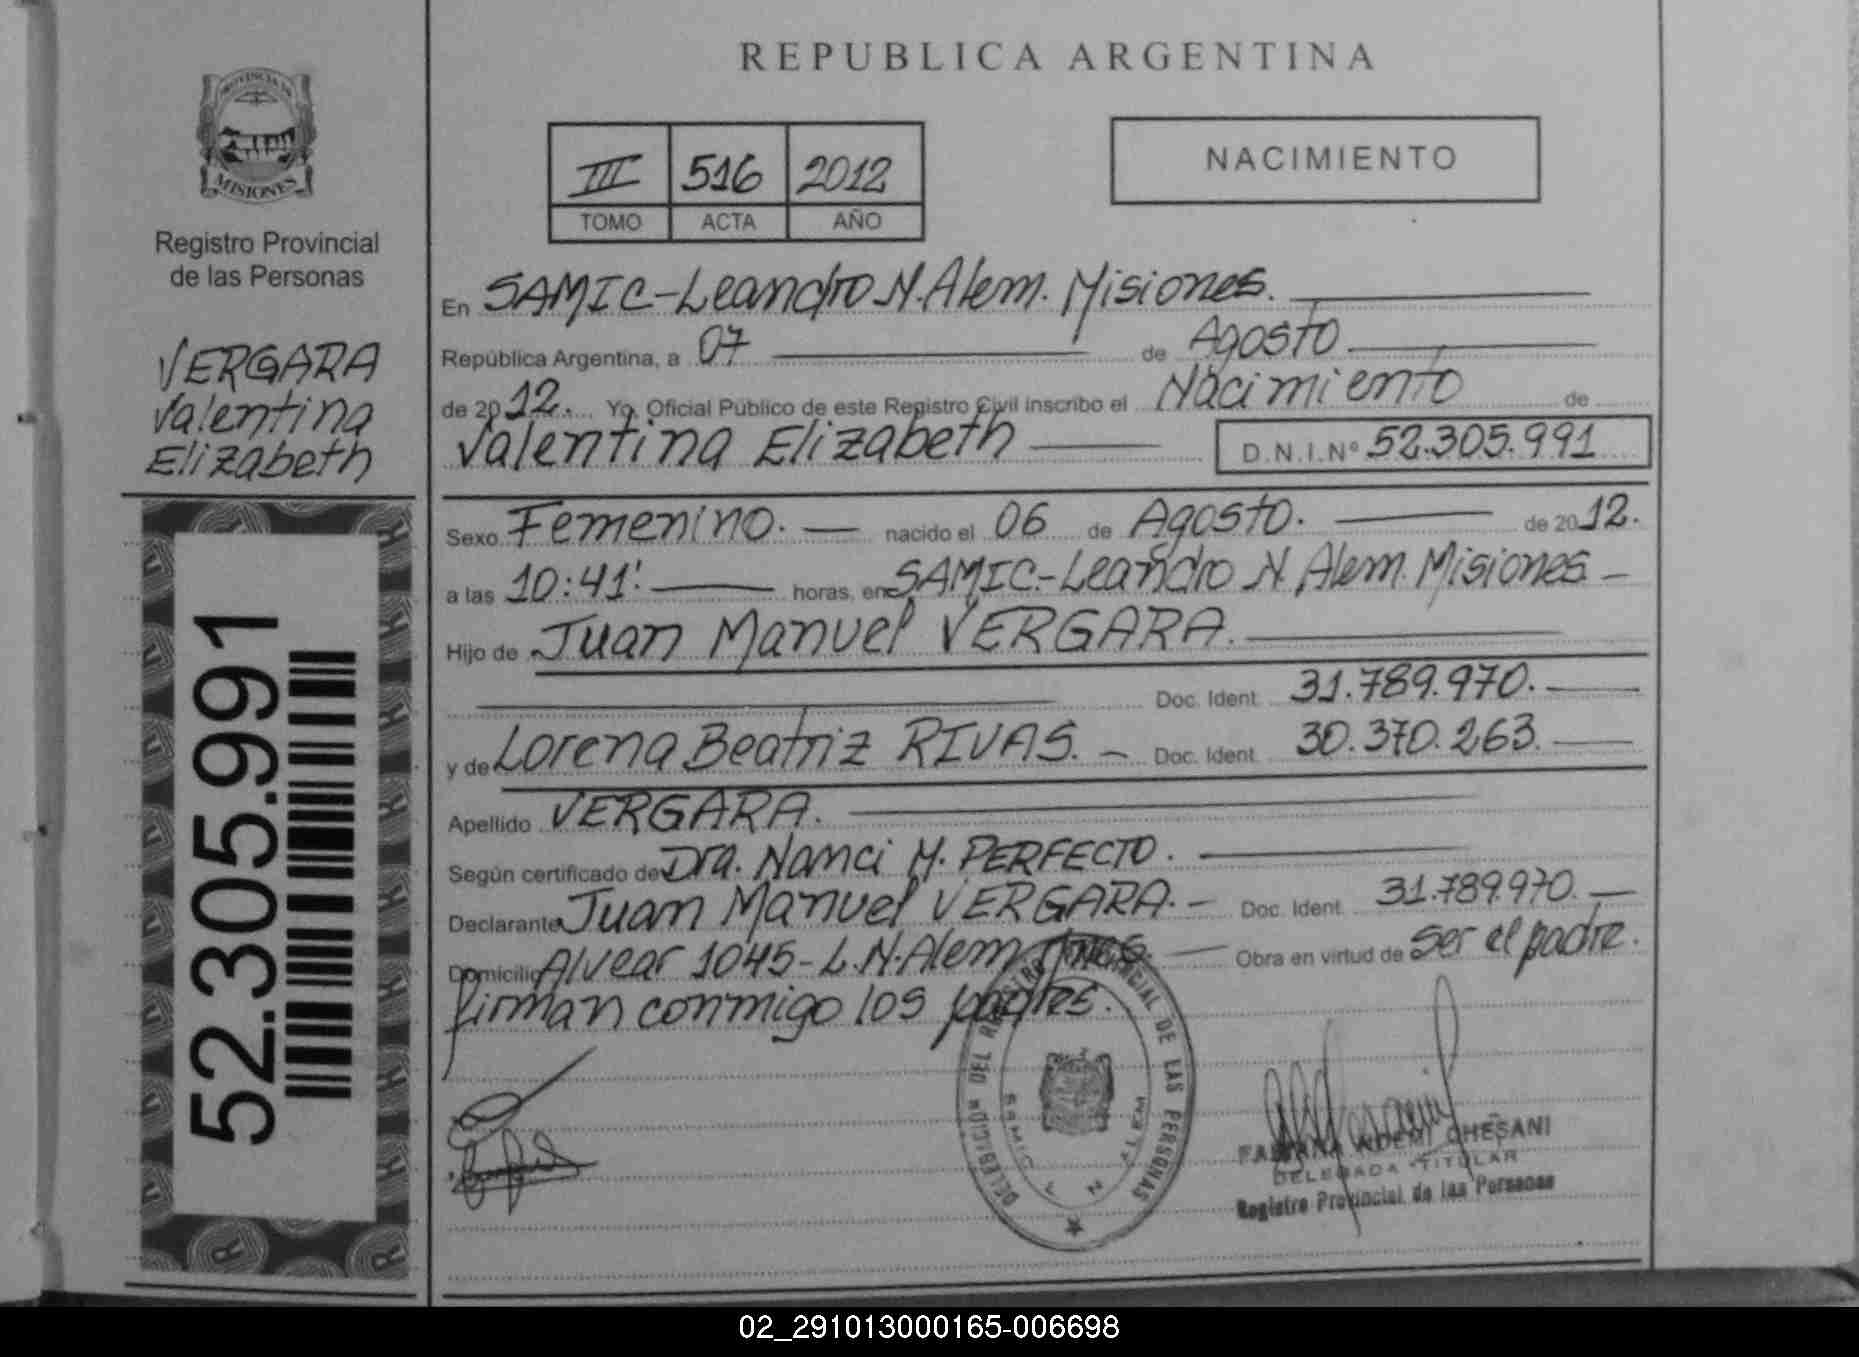 REPUBLICA ARGENTINA
PROVINCIA DE
MISIONES
Registro Provincial
de las Personas
VERGARA
Valentina
Elizabeth
52.305.991
III 516 2012
TOMO ACTA AÑO
NACIMIENTO
En SAMIC-Leandro N. Alem. Misiones.
República Argentina, a 07 de Agosto
de 2012. Yo, Oficial Público de este Registro Civil inscribo el Nacimiento de
Valentina Elizabeth D.N.I.Nº 52.305.991
Sexo Femenino. nacido el 06 de Agosto. de 2012.
a las 10:41' horas, en SAMIC-Leandro N. Alem. Misiones
Hijo de Juan Manuel VERGARA.
Doc. Ident. 31.789.970.
y de Lorena Beatriz RIVAS. Doc. Ident. 30.370.263.
Apellido VERGARA.
Según certificado de Dra. Nanci M. PERFECTO.
Declarante Juan Manuel VERGARA. Doc. Ident. 31.789.970.
Domicilio Alvear 1045-L.N.Alem Mnes. Obra en virtud de ser el padre.
firman conmigo los padres.
DELEGACION DEL REGISTRO PROVINCIAL DE LAS PERSONAS
SAMIC L N ALEM
FABIANA NOEMI CHESANI
DELEGADA TITULAR
Registro Provincial de las Personas
02_291013000165-006698